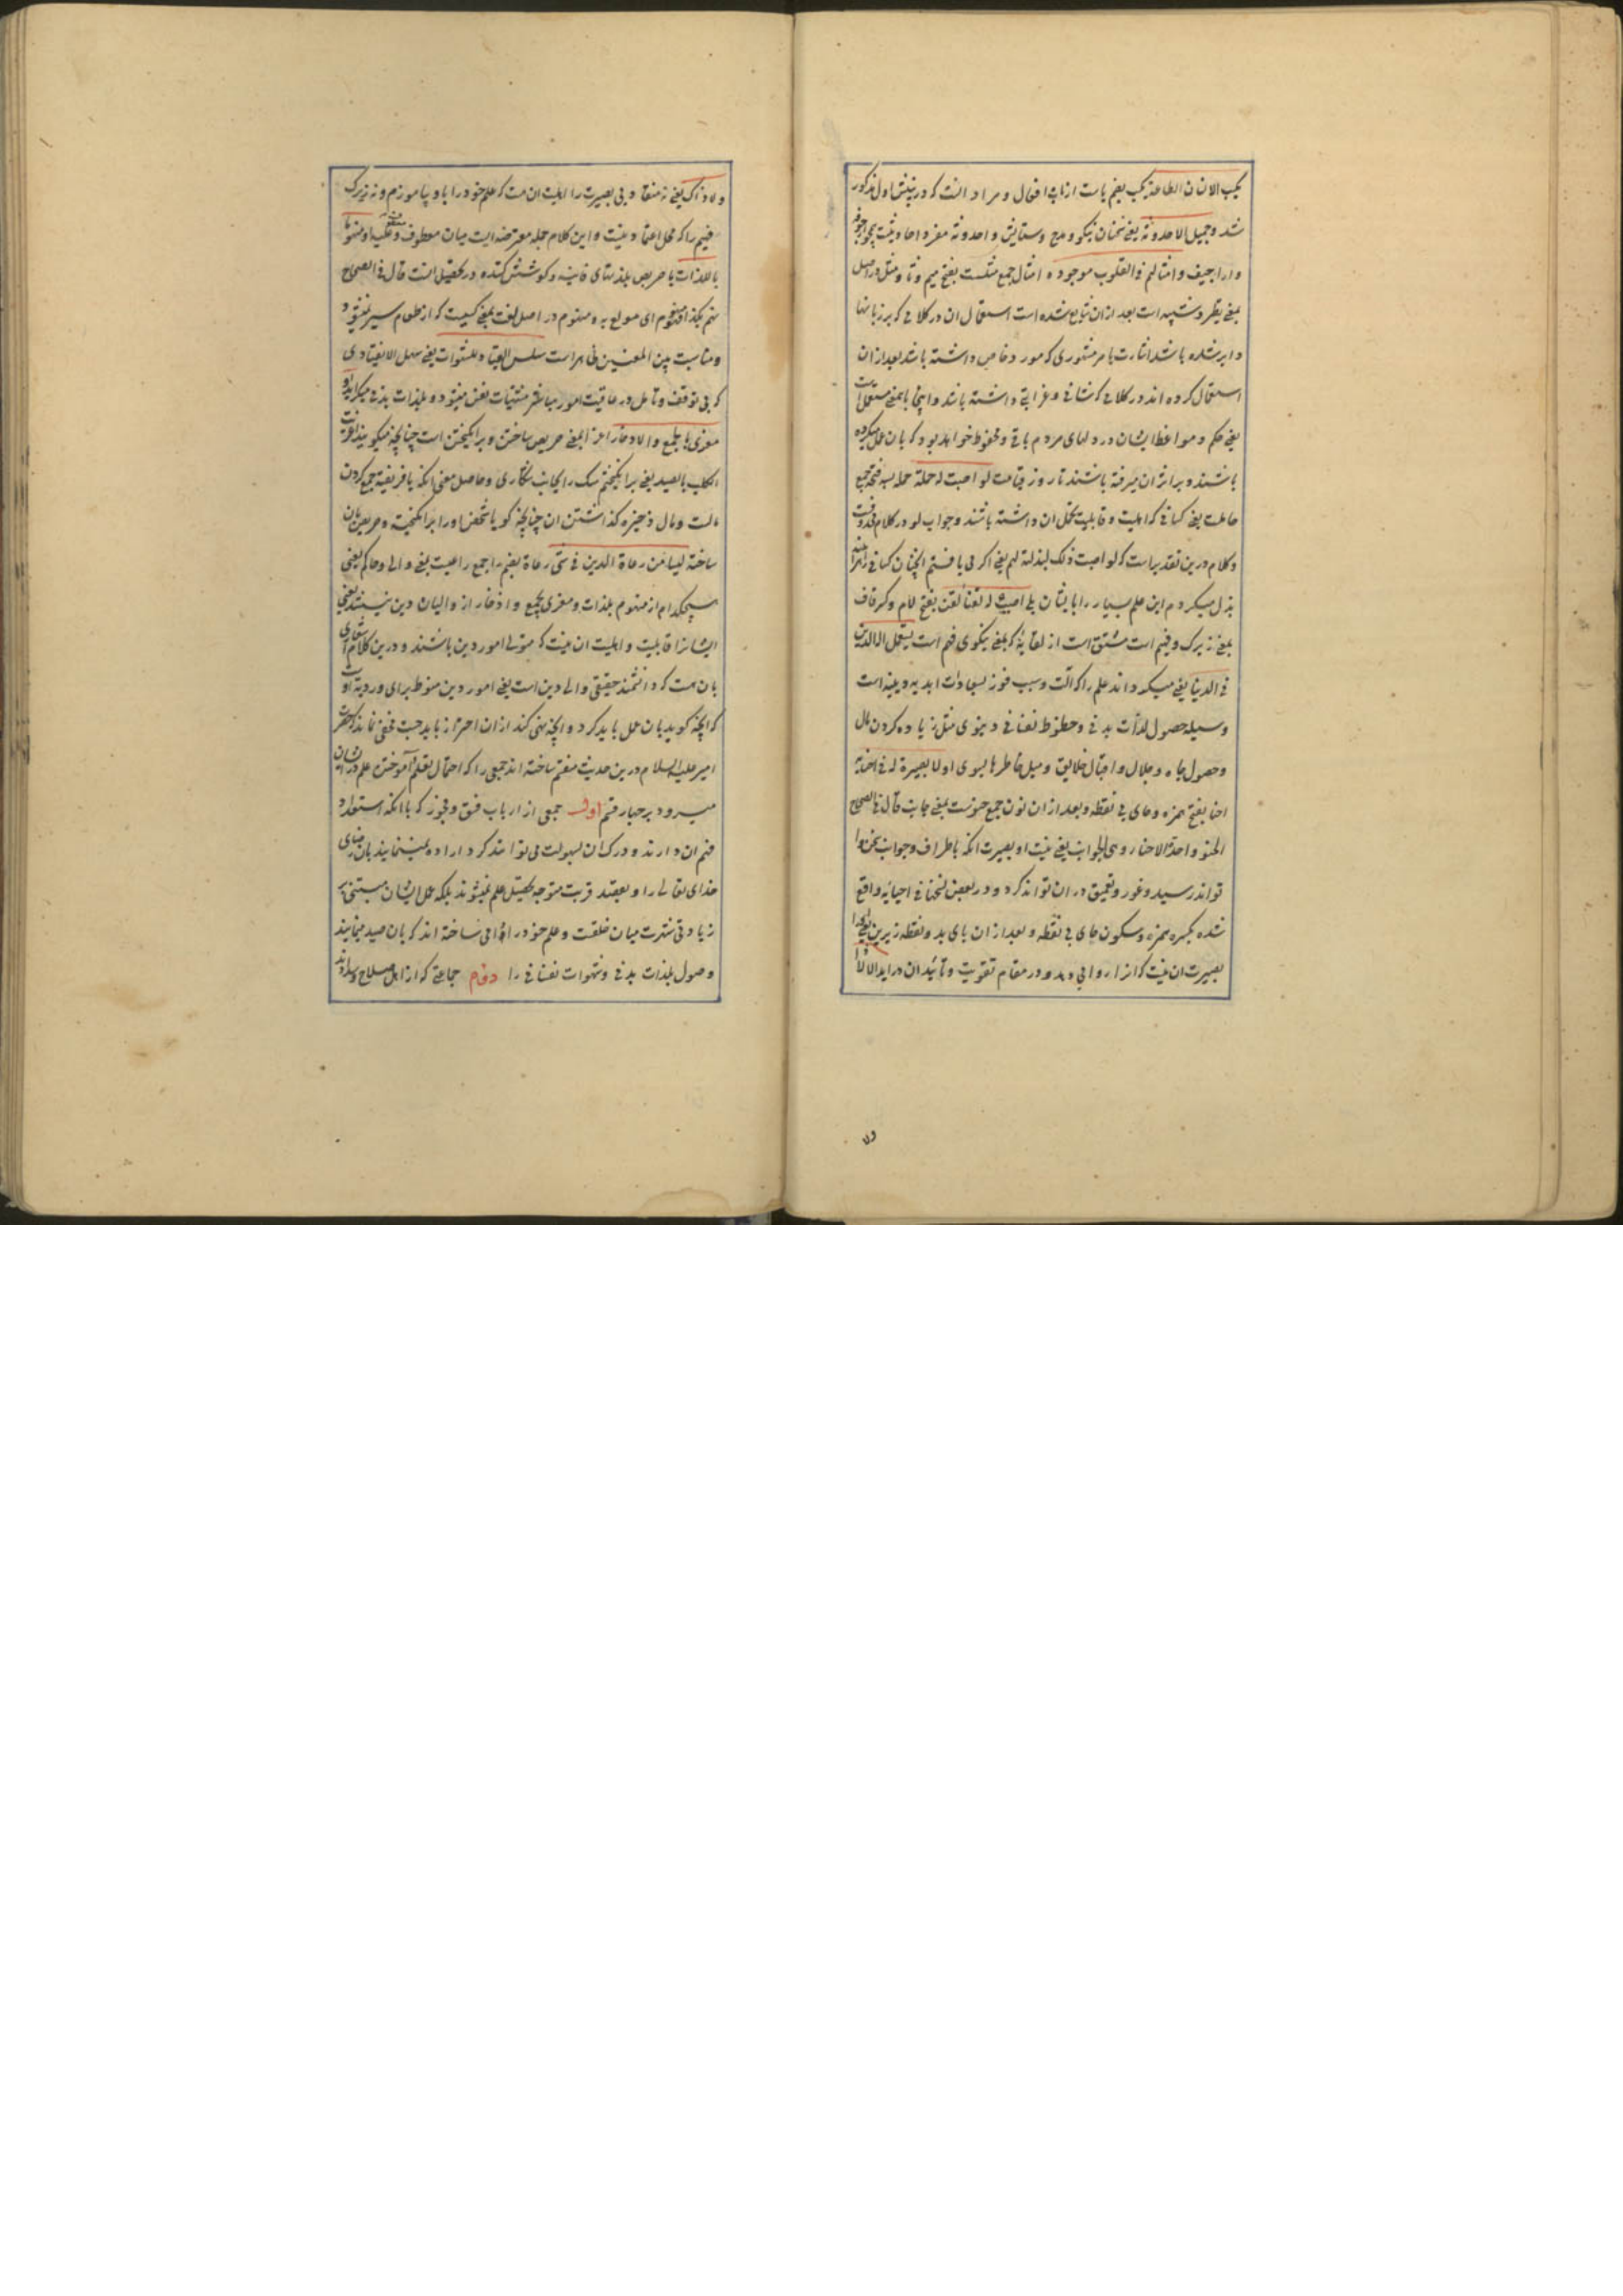 یکسب الانسان الطاعة یکسب بضم یاست از باب افعال و مراد آنست که در پیش اول مذکور
شد وجمیل الاحدوثة یعنی سخنان نیکو و مدح و ستایش و احدوثه مفرد احادیث است
و امثالهم فی القلوب موجوده امثال جمع مثلست بفتح میم و ثا و مثل در اصل
بمعنی نظیر و شبیه است بعد ازان شایع شده است استعمال ان در کلامی که بر زبانها
دایر شده باشد اشارت بامر مشهوری که مورد خاص داشته باشد بعد ازان
استعمال کرده اند در کلامی که شانی و غرابتی داشته باشد و اینجا باینمعنی مستعمل است
یعنی حکم و مواعظ ایشان در دلهای مردم باقی و محفوظ خواهد بود که بان عمل میکرده
باشند و بر اثر ان میرفته باشند تا روز قیامت لو اصبت له حملة حمله بسه فتحه جمع
حاملست یعنی کسانی که اهلیت و قابلیت تحمل ان داشته باشند و جواب لو در کلام
و کلام درین تقدیر است که لو اصبت ذلک لبذلته لهم یعنی اگر می یافتم اینچنان کسانی را هر اینه
بذل میکردم این علم بسیار را بایشان بلی اصیب له لقنا لقن بفتح لام و کسر قاف
بمعنی زیرک و فهیم است مشتق است از لقانیه که بمعنی نیکوی فهم است یستعمل الة الدین
فی الدنیا یعنی میکرداند علم را که الت و سبب فوز بسعادات ابدیه و دینیه است
وسیله حصول لذات بدنی و حظوظ نفسانی دنیوی مثل زیاده کردن مال
و حصول جاه و جلال و اقبال خلایق و میل خاطرها بسوی او لا بصیرة له فی احنائه
احنا بفتح همزه و حای بی نقطه و بعد ازان نون جمع حنوست بمعنی جانب قال فی الصحاح
الحنو واحد الاحناء وهی الجوانب یعنی نیست او را بصیرت انکه باطراف و جوانب سخن
تواند رسید و غور و تعمیق دران تواند کرد و در بعض نسخها فی احیائه واقع
شده بکسره همزه و سکون حای بی نقطه و بعد ازان یای بدو نقطه زیرین یعنی او را
بصیرت ان نیست که انرا رواجی دهد و در مقام تقویت و تایید ان دراید الا لا
ولا ذاک یعنی نه منقاد بی بصیرت را اهلیت ان هست که علم خود را باو بیاموزم و نه زیرک
فهیم را که محل اعتماد نیست و این کلام جمله معترضه ایست میان معطوف و معطوف علیه او منهوما
باللذات یا حریص بلذتهای فانیه و کوشش کننده در تحصیل انست قال فی الصحاح
نهم بکذا فهو منهوم ای مولع به و منهوم در اصل لغت بمعنی کسیست که از طعام سیر نشود
و مناسبت بین المعنیین ظاهر است سلس القیاد للشهوات یعنی سهل الانقیادی
که بی توقف و تامل در عاقبت امور مباشر مشتهیات نفس میشود و بلذات بدنی میکراید او
مغری بالجمع والادخار اغرا بمعنی حریص ساختن و برانکیختن است چنانچه میکویند اغریت
الکلب بالصید یعنی برانکیختم سک را بجانب شکاری و حاصل معنی انکه یا فریفته جمع کردن
مالست و مال ذخیره کذاشتن ان چنانچه کویا شخص او را برانکیخته و حریص بان
ساخته لیسا من رعاة الدین فی شئ رعاة بضم را جمع راعیست یعنی والی و حاکم یعنی
هیچکدام از منهوم بلذات و مغری بجمع و ادخار از والیان دین نیستند یعنی
ایشانرا قابلیت و اهلیت ان نیست که متولی امور دین باشند و درین کلام اشعاری
بان هست که دانشمند حقیقی والی دین است یعنی امور دین منوط برای و رویه اوست
که انچه کوید بان عمل باید کرد و انچه نهی کند ازان احتراز باید جست مخفی نماند که حضرت
امیر علیه السلام درین حدیث منقسم ساخته اند جمعی را که احتمال تعلم و آموختن علم در ایشان
میرود بر چهار قسم اول جمعی از ارباب فسق و فجور که با انکه استعداد
فهم ان دارند و درک ان بسهولت می توانند کرد اراده نمینمایند بان رضای
خدای تعالی را و بقصد قربت متوجه تحصیل علم نمیشوند بلکه عمل ایشان
زیادتی شهرت میان خلقست و علم خود را دامی ساخته اند که بان صید مینمایند
وصول بلذات بدنی و شهوات نفسانی را دوم جماعتی که از اهل صلاح و سدادند